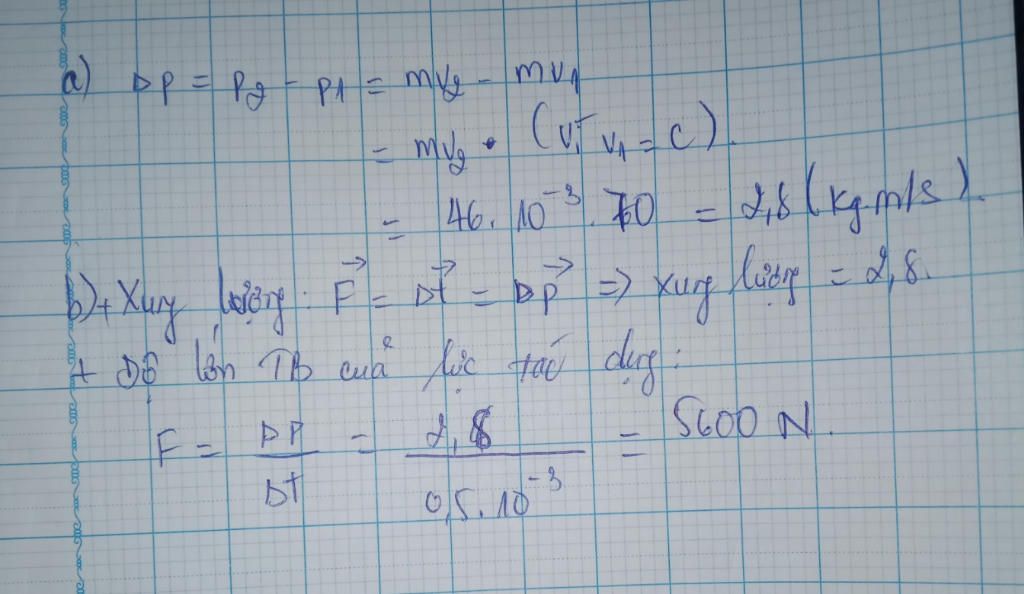 a) Δp = p2 - p1 = mv2 - mv1
= mv2. (vì v1 = 0).
= 46.10⁻³.70 = 2,8 (kg.m/s).
b) + Xung lượng: F⃗ = Δt⃗ = Δp⃗ => xung lượng = 2,8.
+ Độ lớn TB của lực tác dụng:
F = Δp/Δt = 2,8/0,5.10⁻³ = 5600 N.